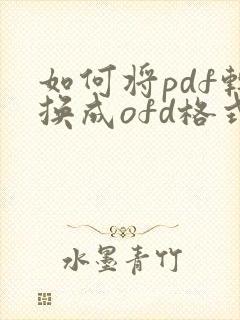 如何将pdf转
换成ofd格式
水墨青竹